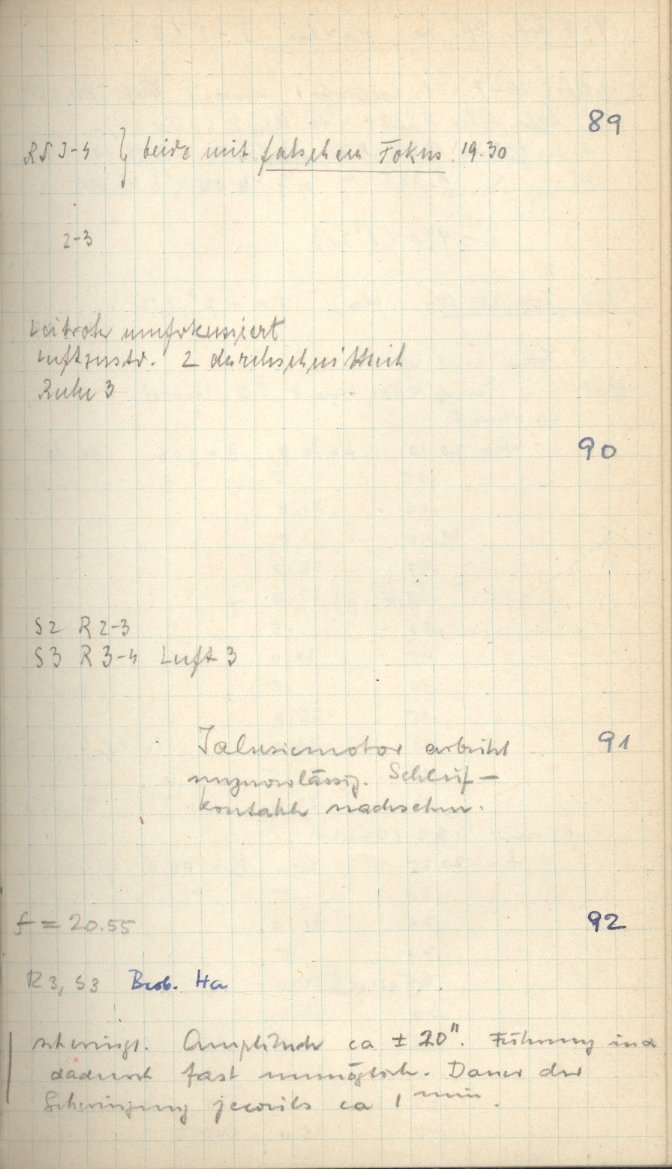 89
RS 3-4 } beide mit falschem Fokus. 19.30
2-3
Leitrohr umfokussiert
Luftzust. 2 durchschnittlich
Ruhe 3
90
S2 R2-3
S3 R3-4 Luft 3
Jalusiemotor arbeitet 91
unzuverlässig. Schleif-
kontakte nachsehen.
f = 20.55 92
R3, S3 Beob. Ha
schwingt. Amplitude ca ± 20". Führung
dadurch fast unmöglich. Dauer der
Schwingung jeweils ca 1 min.